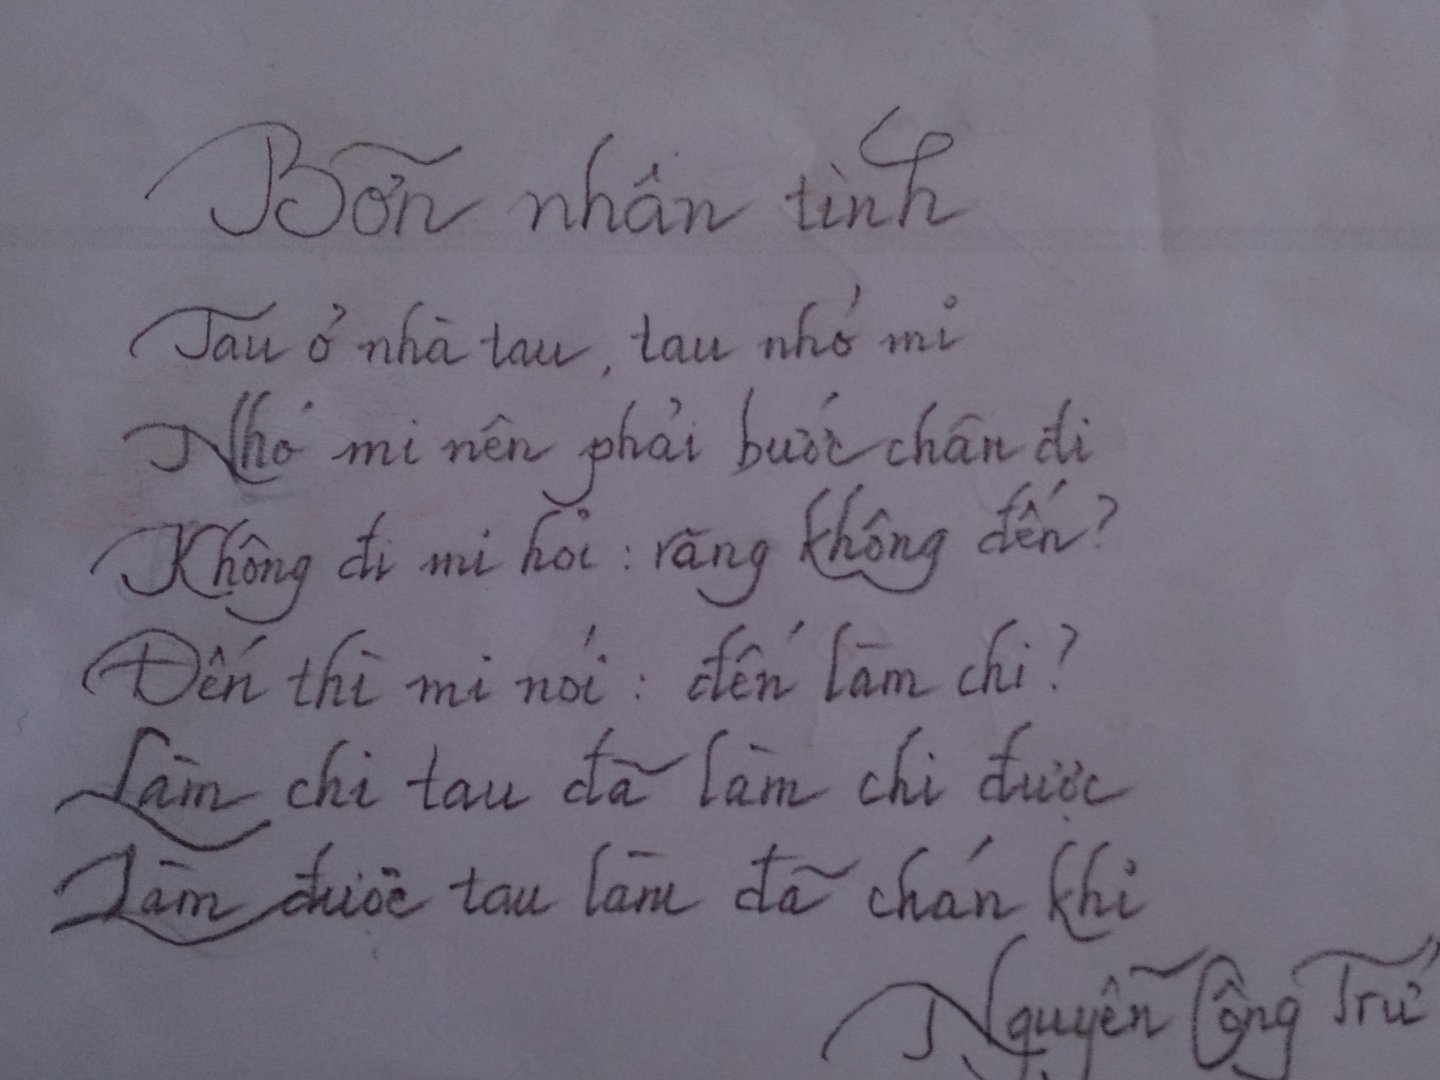 Bỡn nhân tình
Tau ở nhà tau, tau nhớ mi
Nhớ mi nên phải bước chân đi
Không đi mi hỏi : răng không đến?
Đến thì mi nói : đến làm chi?
Làm chi tau đã làm chi được
Làm được tau làm đã chán khi
Nguyễn Công Trứ